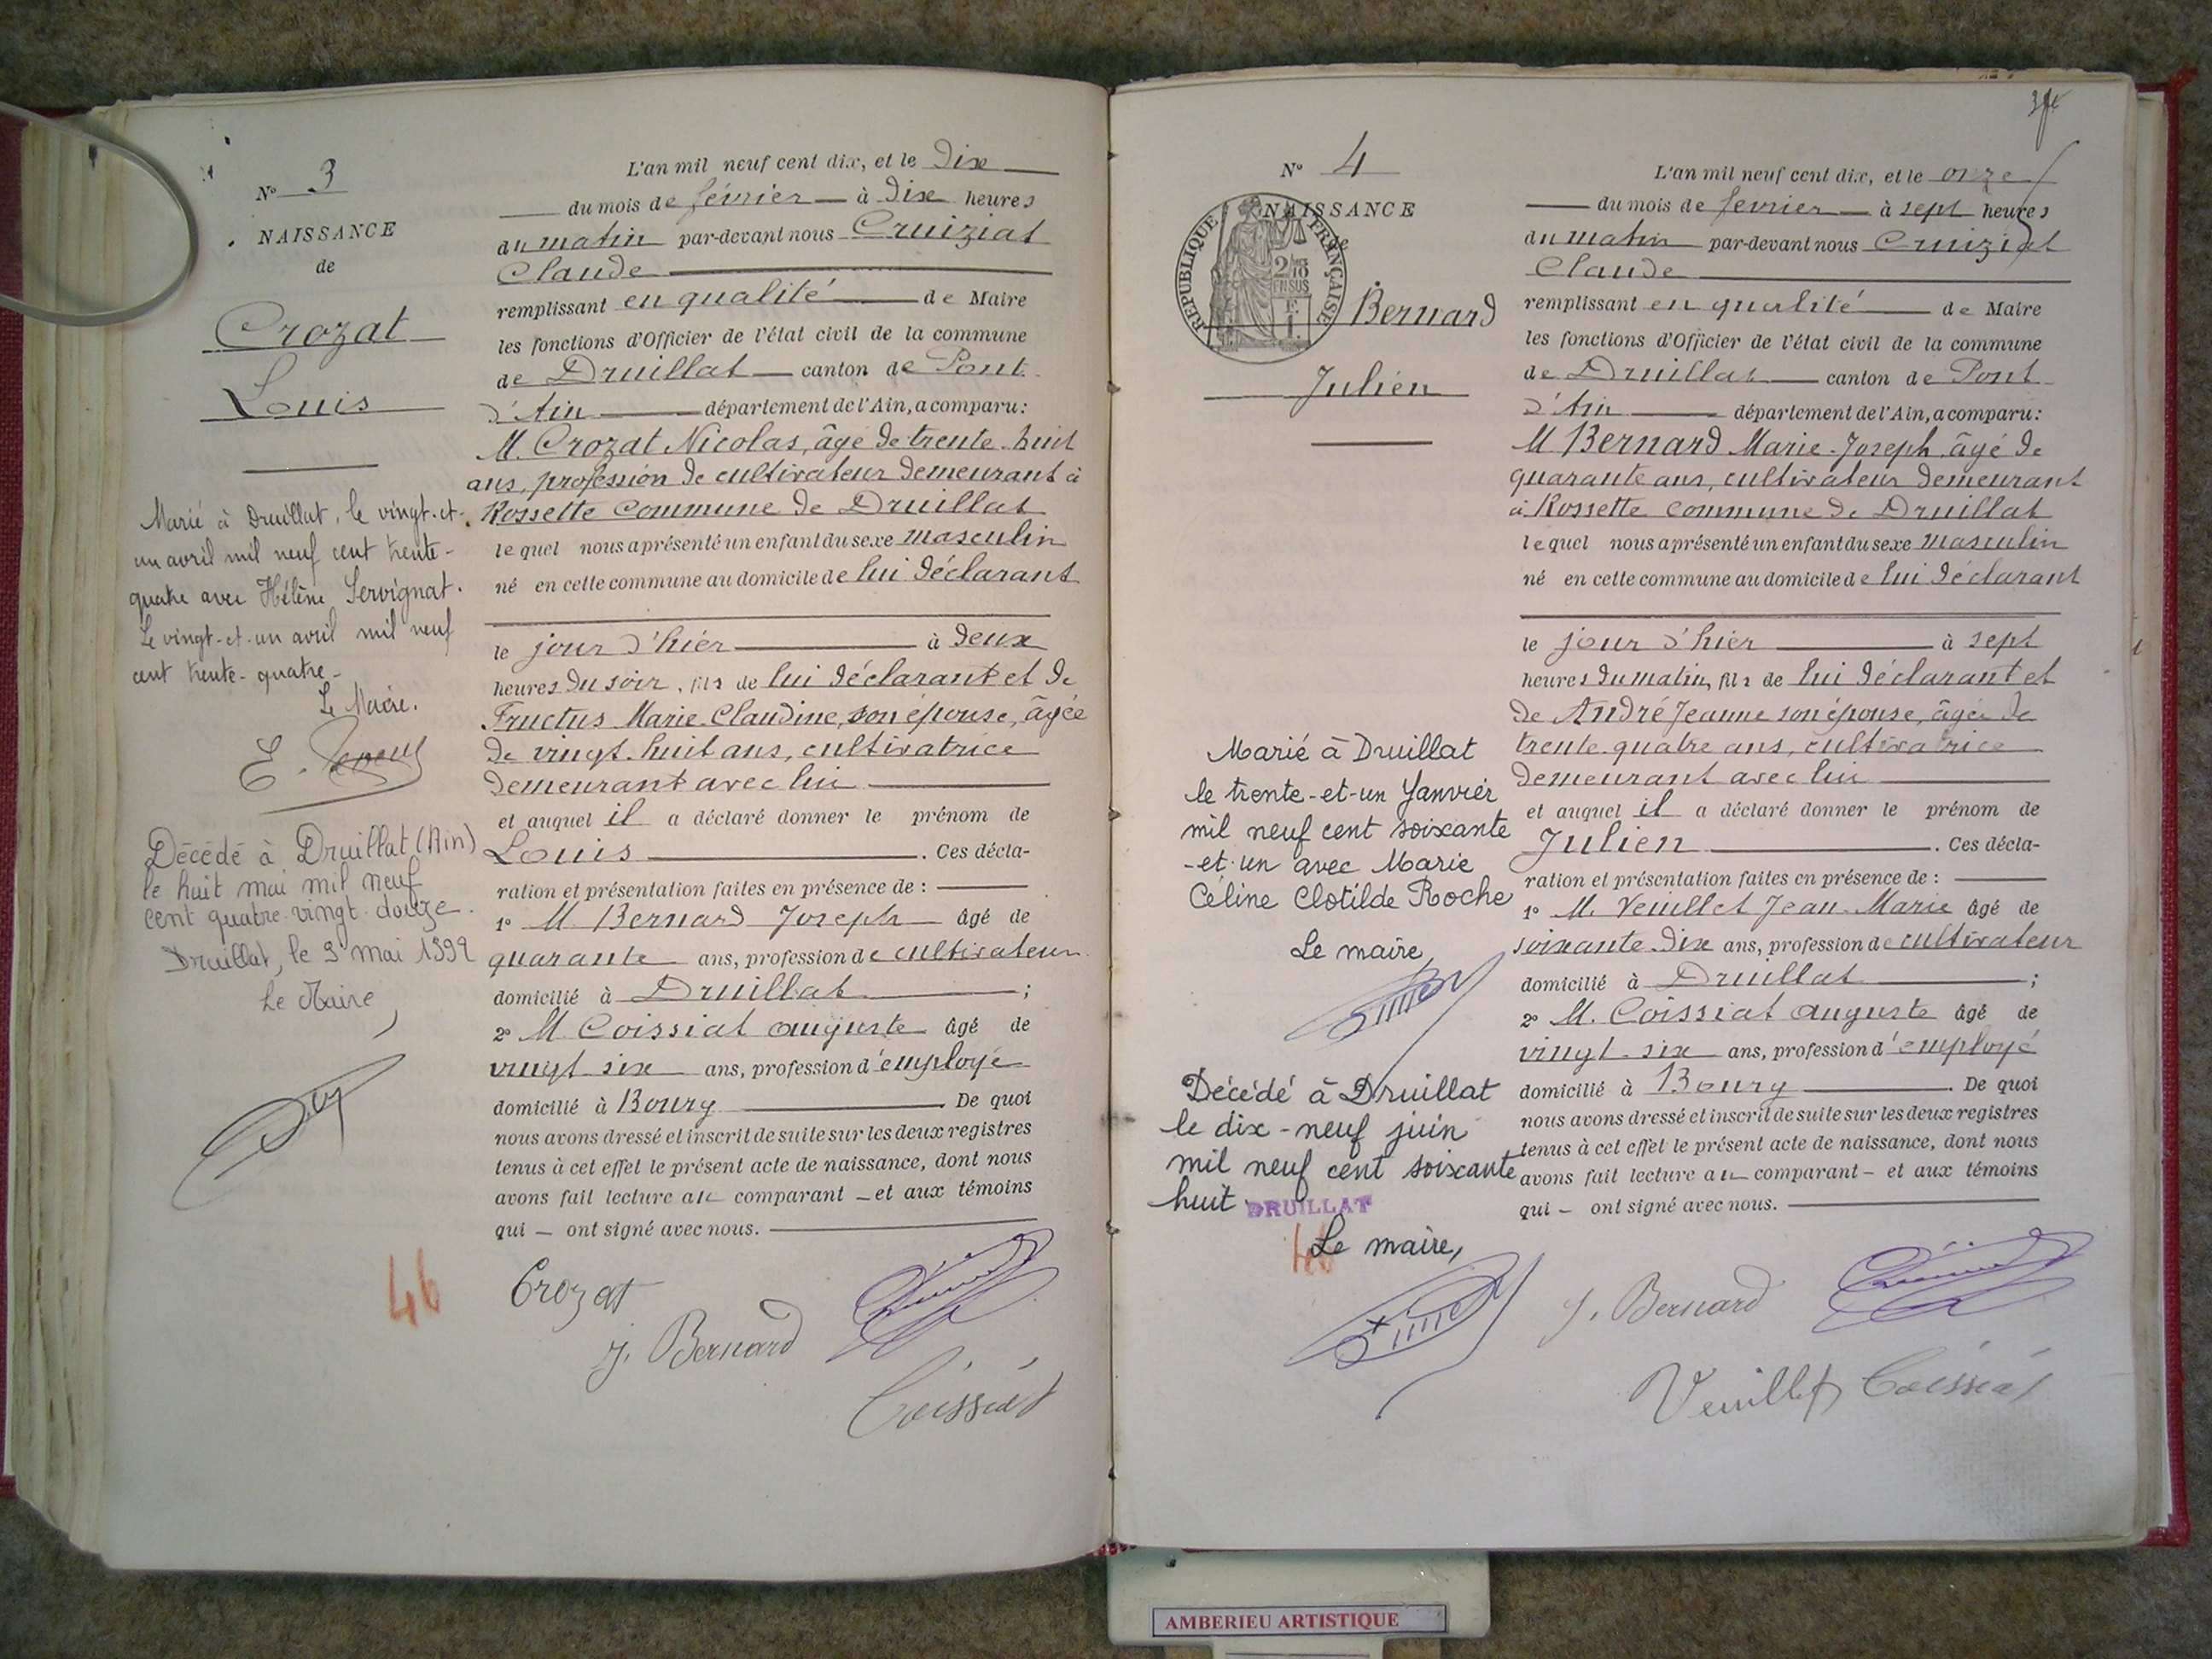 N° 3
NAISSANCE
de
Crozat
Louis
Marié à Druillat, le vingt-et-
un avril mil neuf cent trente-
quatre avec Hélène Servignat.
Le vingt-et-un avril mil neuf
cent trente-quatre-
Le Maire.
Décédé à Druillat (Ain)
le huit mai mil neuf
cent quatre-vingt-douze.
Druillat, le 9 mai 1992
Le Maire,
L'an mil neuf cent dix, et le dix
du mois de février à dix heures
du matin par-devant nous Cruiziat
Claude
remplissant en qualité de Maire
les fonctions d'Officier de l'état civil de la commune
de Druillat canton de Pont
d'Ain département de l'Ain, a comparu:
M. Crozat Nicolas, âgé de trente-huit
ans, profession de cultivateur demeurant à
Rossette commune de Druillat
lequel nous a présenté un enfant du sexe masculin
né en cette commune au domicile de lui déclarant
le jour d'hier à deux
heures du soir, fils de lui déclarant et de
Fructus Marie-Claudine, son épouse, âgée
de vingt-huit ans, cultivatrice
demeurant avec lui
et auquel il a déclaré donner le prénom de
Louis . Ces décla-
ration et présentation faites en présence de :
1° M Bernard Joseph âgé de
quarante ans, profession de cultivateur
domicilié à Druillat ;
2° M Coissiat auguste âgé de
vingt-six ans, profession d'employé
domicilié à Bourg De quoi
nous avons dressé et inscrit de suite sur les deux registres
tenus à cet effet le présent acte de naissance, dont nous
avons fait lecture au comparant – et aux témoins
qui – ont signé avec nous.
46
Crozat
J. Bernard
Coissiat
N° 4
NAISSANCE
de
REPUBLIQUE FRANÇAISE
Bernard
Julien
Marié à Druillat
le trente-et-un Janvier
mil neuf cent soixante
-et-un avec Marie
Céline Clotilde Roche
Le maire,
Décédé à Druillat
le dix-neuf juin
mil neuf cent soixante
huit DRUILLAT
Le maire,
L'an mil neuf cent dix, et le onze
du mois de fevrier à sept heures
du matin par-devant nous Cruiziat
Claude
remplissant en qualité de Maire
les fonctions d'Officier de l'état civil de la commune
de Druillat canton de Pont
d'Ain département de l'Ain, a comparu:
M Bernard Marie-Joseph, âgé de
quarante ans, cultivateur demeurant
à Rossette commune de Druillat
lequel nous a présenté un enfant du sexe masculin
né en cette commune au domicile de lui déclarant
le jour d'hier à sept
heures du matin, fils de lui déclarant et
de André Jeanne son épouse, âgée de
trente-quatre ans, cultivatrice
demeurant avec lui
et auquel il a déclaré donner le prénom de
Julien . Ces décla-
ration et présentation faites en présence de :
1° M. Veuillet Jean-Marie âgé de
soixante-dix ans, profession de cultivateur
domicilié à Druillat ;
2° M. Coissiat auguste âgé de
vingt-six ans, profession d'employé
domicilié à Bourg . De quoi
nous avons dressé et inscrit de suite sur les deux registres
tenus à cet effet le présent acte de naissance, dont nous
avons fait lecture au comparant – et aux témoins
qui – ont signé avec nous.
J. Bernard
Veuillet Coissiat
AMBERIEU ARTISTIQUE